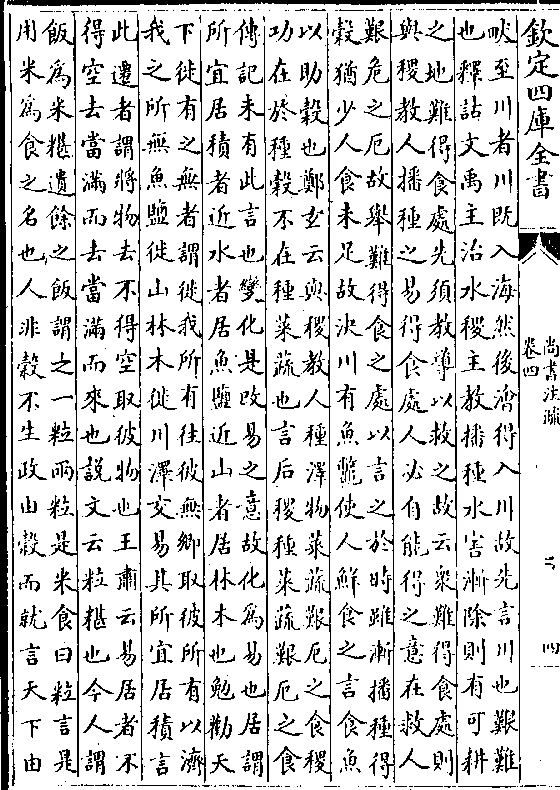 欽定四庫全書
尚書注疏
卷四
四
畎至川者川既入海然後澮得入川故先言川也艱難
也釋詁文禹主治水稷主教播種水害漸除則有可耕
之地難得食處先須教導以救之故云衆難得食處則
與稷教人播種之易得食處人必自能得之意在救人
艱危之厄故舉難得食之處以言之於時雖漸播種得
穀猶少人食未足故決川有魚鼈使人鮮食之言食魚
以助穀也鄭𤣥云與稷教人種澤物菜蔬艱厄之食稷
功在於種穀不在種菜蔬也言后稷種菜蔬艱厄之食
傳記未有此言也變化是改易之意故化為易也居謂
所宜居積者近水者居魚鹽近山者居林木也勉勸天
下徙有之無者謂徙我所有往彼無鄉取彼所有以濟
我之所無魚鹽徙山林木徙川澤交易其所宜居積言
此遷者謂將物去不得空取彼物也王肅云易居者不
得空去當滿而去當滿而來也説文云粒糂也今人謂
飯為米糂遺餘之飯謂之一粒兩粒是米食曰粒言是
用米為食之名也人非穀不生政由穀而就言天下由